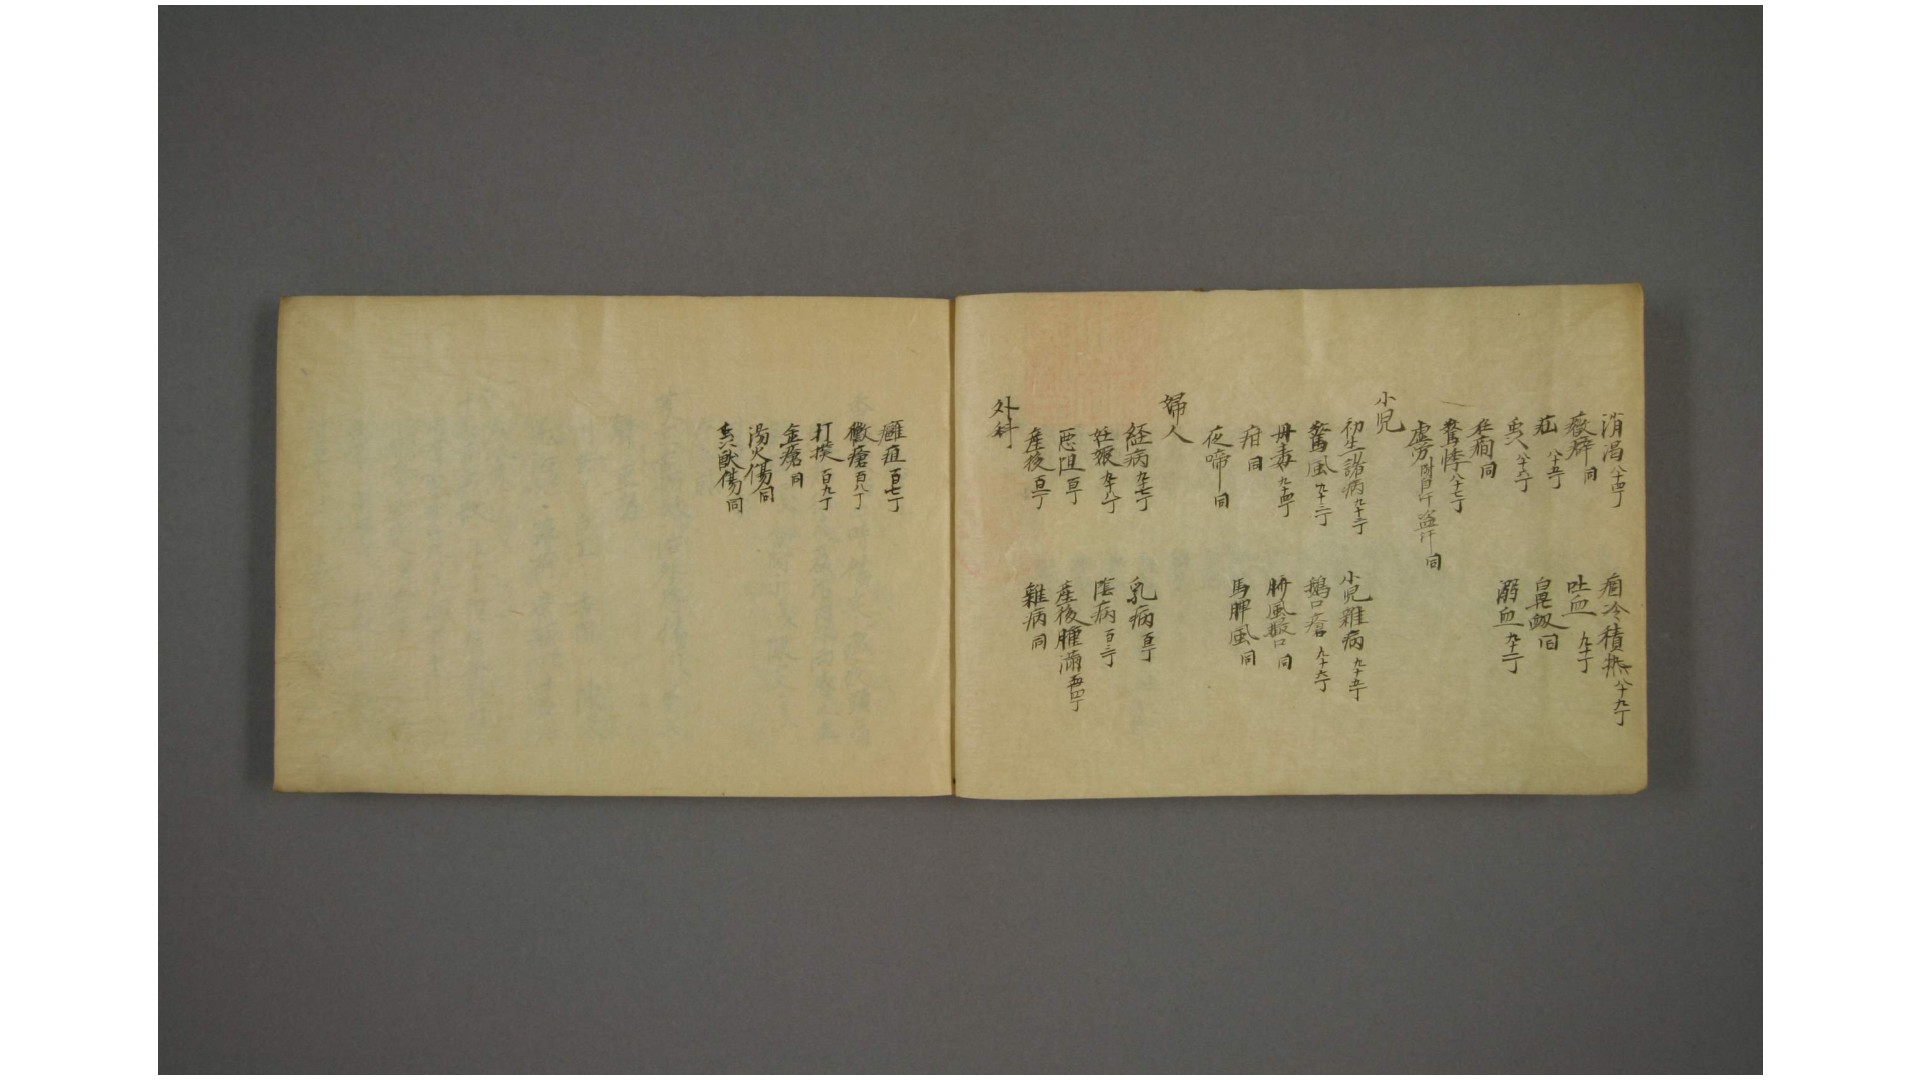 消渇八十四丁　痼冷積熱八十九丁
癥癖同　吐血九十丁
疝八十五丁　鼻衂同
臭八十六丁　溺血九十一丁
狂癇同
驚悸八十七丁
虚労附自汗盗汗同
小児
初生諸病九十二丁　小児雜病九十五丁
驚風九十三丁　鵝口瘡九十六丁
丹毒九十四丁　臍風撮口同
疳同　馬脾風同
夜啼同
婦人
経病九十七丁　乳病
妊娠九十八丁　陰病百三丁
悪阻　産後腫滿百四丁
産後　雜病同
外科
癰疽百七丁
黴瘡百八丁
打撲百九丁
金瘡同
湯火傷同
虫獣傷同